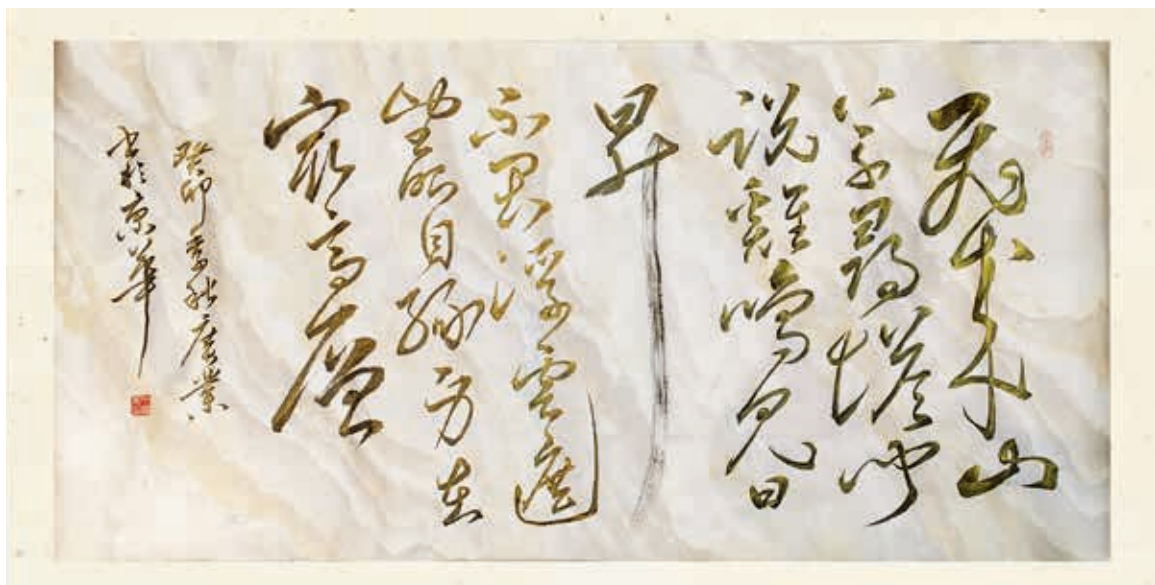 飛來山
上千尋塔聞
説雞鳴見日
昇
不畏浮雲遮
望眼自緣身在
最高層
癸卯季秋
書於京華